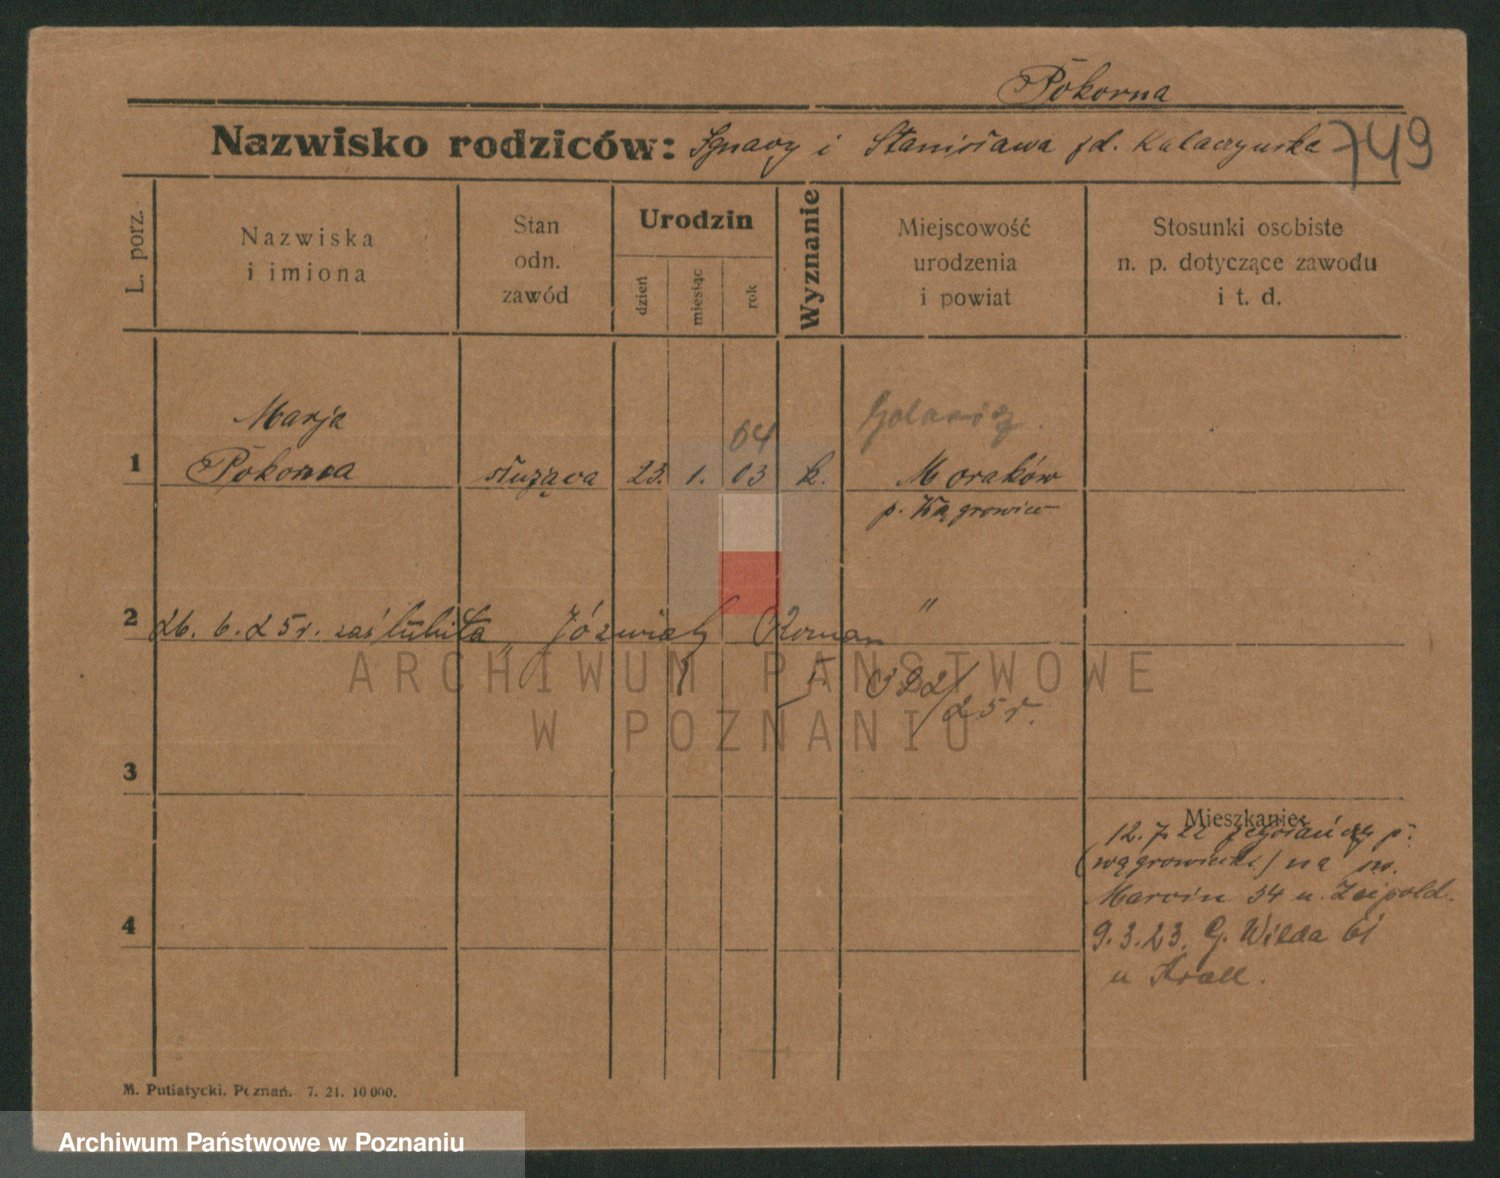 Pokorna
Nazwisko rodziców: Ignacy i Stanisława zd. Kulaczynska 749
L. porz.
Nazwiska
i imiona
Stan
odn.
zawód
Urodzin
dzień
miesiąc
rok
Wyznanie
Miejscowość
urodzenia
i powiat
Stosunki osobiste
n. p. dotyczące zawodu
i t. d.
Marja
04
1 Pokorna służąca 23. 1. 03 k. Moraków
p. Wągrowiec
2 26. 6. 25 r. zaślubiła Józwiak Roman "
25 r.
3
Mieszkanie:
12. 7. 22 p.
(wągrowiecki) na m.
Marcin 34 u.
4 9. 3. 23. G. Wilda 61
u Krall.
M. Putiatycki. Poznań. 7. 21. 10 000.
ARCHIWUM PAŃSTWOWE
W POZNANIU
Archiwum Państwowe w Poznaniu